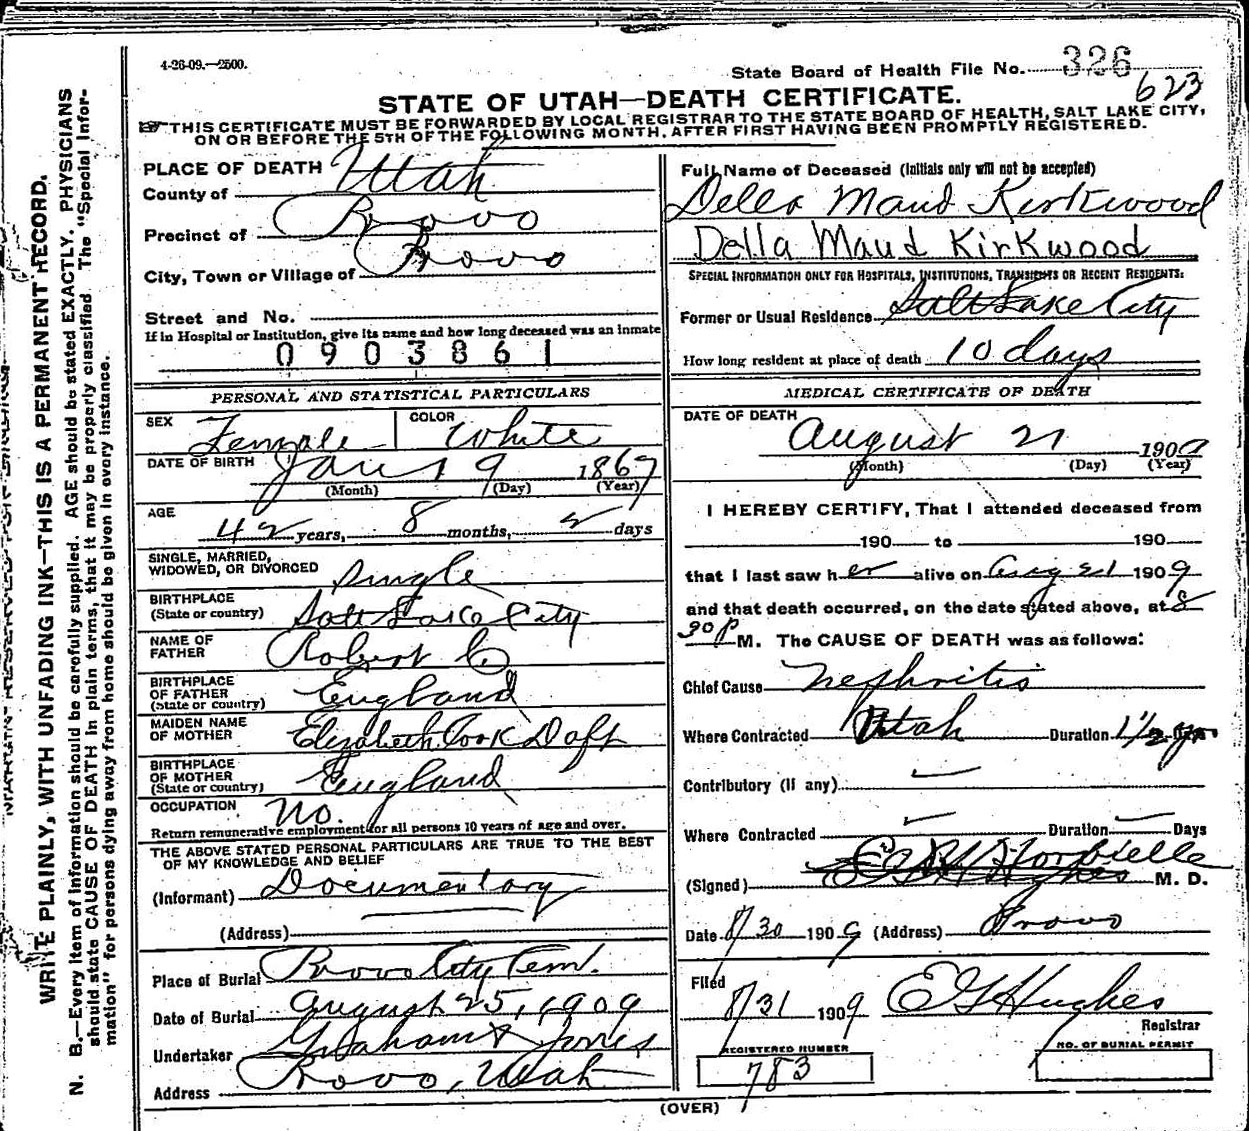 4-26-09.—2500.
State Board of Health File No. 326
623
STATE OF UTAH—DEATH CERTIFICATE.
THIS CERTIFICATE MUST BE FORWARDED BY LOCAL REGISTRAR TO THE STATE BOARD OF HEALTH, SALT LAKE CITY,
ON OR BEFORE THE 5TH OF THE FOLLOWING MONTH, AFTER FIRST HAVING BEEN PROMPTLY REGISTERED.
WRITE PLAINLY, WITH UNFADING INK—THIS IS A PERMANENT RECORD.
N. B.—Every item of information should be carefully supplied. AGE should be stated EXACTLY. PHYSICIANS
should state CAUSE OF DEATH in plain terms, that it may be properly classified The "Special Infor-
mation" for persons dying away from home should be given in every instance.
PLACE OF DEATH
County of Utah
Precinct of Provo
City, Town or Village of Provo
Street and No.
If in Hospital or Institution, give its name and how long deceased was an inmate
0903861
PERSONAL AND STATISTICAL PARTICULARS
SEX Female COLOR White
DATE OF BIRTH Jan 19 1867
(Month) (Day) (Year)
AGE
42 years, 8 months, 2 days
SINGLE, MARRIED,
WIDOWED, OR DIVORCED single
BIRTHPLACE
(State or country) Salt Lake City
NAME OF
FATHER Robert C
BIRTHPLACE
OF FATHER
(State or country) England
MAIDEN NAME
OF MOTHER Elizabeth Cook Daft
BIRTHPLACE
OF MOTHER
(State or country) England
OCCUPATION no.
Return remunerative employment for all persons 10 years of age and over.
THE ABOVE STATED PERSONAL PARTICULARS ARE TRUE TO THE BEST
OF MY KNOWLEDGE AND BELIEF
(Informant) Documentary
(Address)
Place of Burial Provo City Cem.
Date of Burial August 25, 1909
Undertaker Graham & Jones
Address Provo, Utah
Full Name of Deceased (Initials only will not be accepted)
Della Maud Kirkwood
Della Maud Kirkwood
SPECIAL INFORMATION ONLY FOR HOSPITALS, INSTITUTIONS, TRANSIENTS OR RECENT RESIDENTS:
Former or Usual Residence Salt Lake City
How long resident at place of death 10 days
MEDICAL CERTIFICATE OF DEATH
DATE OF DEATH
August 21 1909
(Month) (Day) (Year)
I HEREBY CERTIFY, That I attended deceased from
190 to 190
that I last saw her alive on Aug 21 1909
and that death occurred, on the date stated above, at 8
30 P M. The CAUSE OF DEATH was as follows:
Chief Cause Nephritis
Where Contracted Utah Duration 1½ yrs.
Contributory (if any)
Where Contracted Duration Days
(Signed) M. D.
Date 8/30 1909 (Address) Provo
Filed
8/31 1909 E G Hughes
Registrar
REGISTERED NUMBER
783
NO. OF BURIAL PERMIT
(OVER)